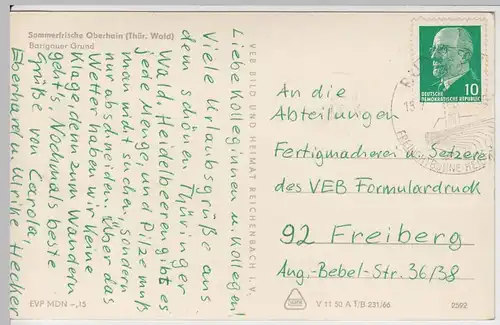 Sommerfrische Oberhain (Thür. Wald)
Barigauer Grund
Liebe Kolleginnen u. Kollegen!
Viele Urlaubsgrüße aus
dem schönen Thüringer
Wald. Heidelbeeren gibt es
jede Menge, und Pilze muß
man nicht suchen, sondern
nur abschneiden. Über das
Wetter haben wir keine
Klage, denn zum Wandern
geht's. Nochmals beste
Grüße von Carola,
Eberhard u. Ulrike Hecker
EVP MDN -,15
VEB BILD UND HEIMAT REICHENBACH I. V.
DEUTSCHE
DEMOKRATISCHE REPUBLIK
10
An die
Abteilungen
Fertigmacherei u. Setzerei
des VEB Formulardruck
92 Freiberg
Aug.-Bebel-Str. 36/38
V 11 50 A 1/B 231/66
2592